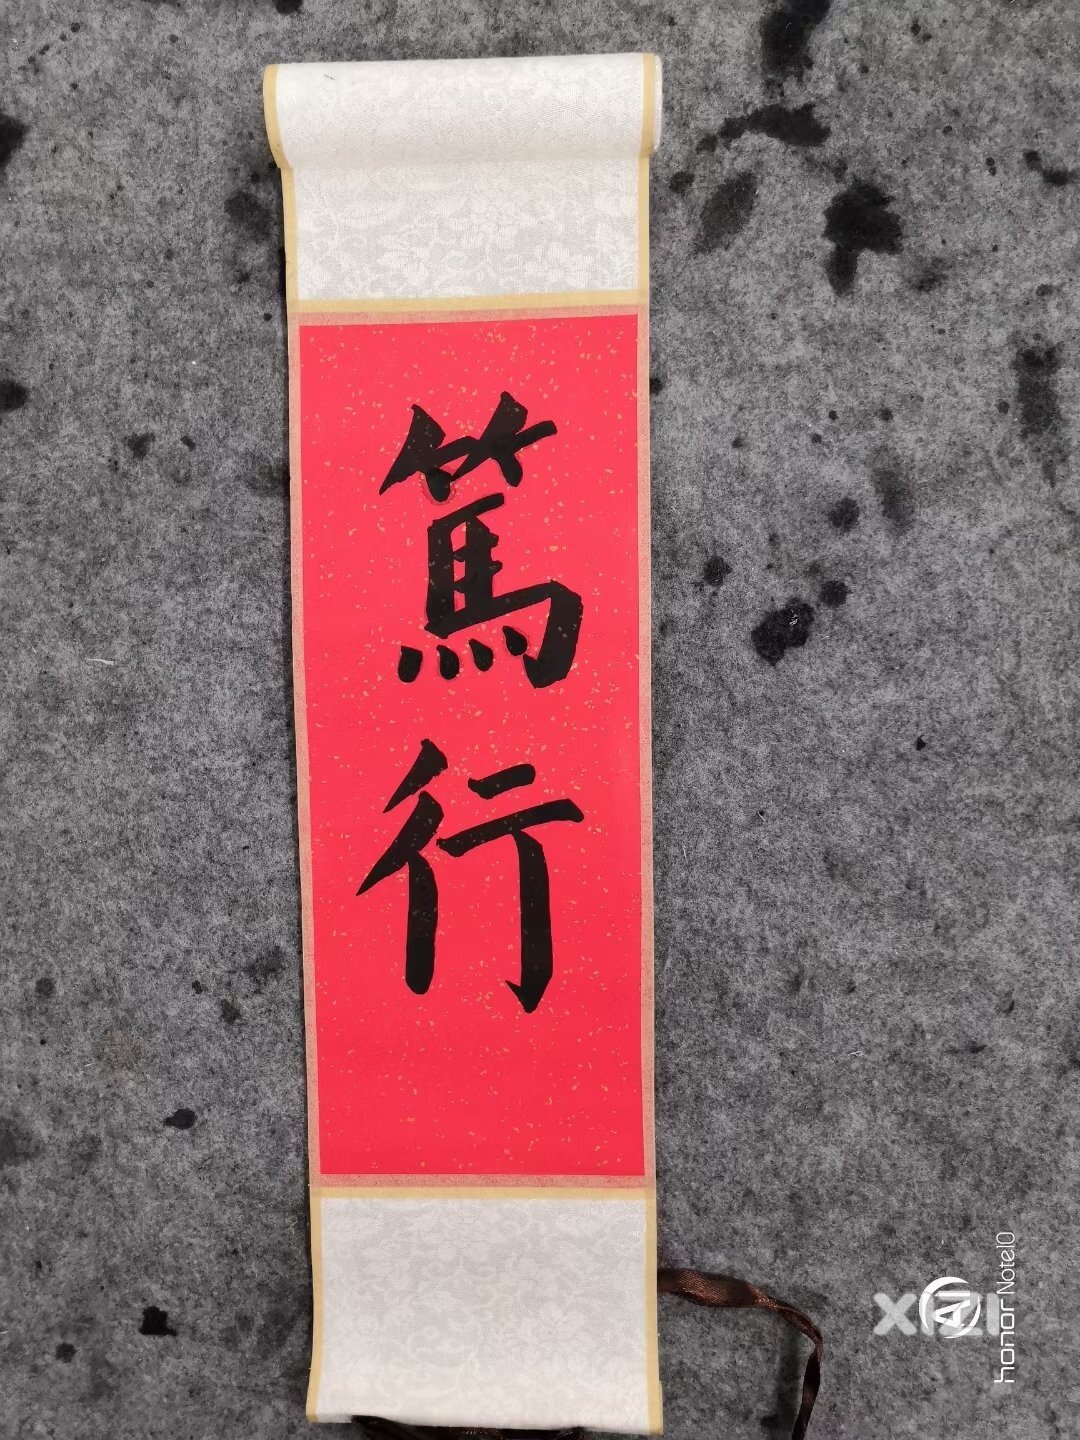 篤行
honor Note10
XIZI